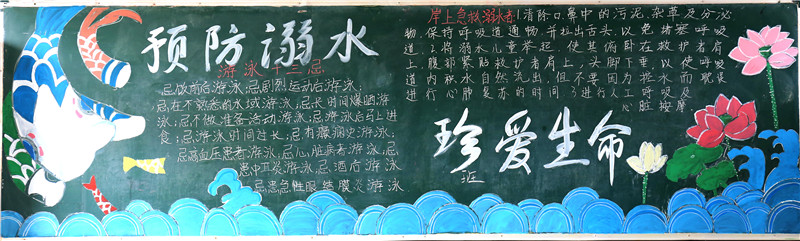 预防溺水
游泳十三忌
忌饭前后游泳;忌剧烈运动后游泳;
忌在不熟悉的水域游泳;忌长时间曝晒游
泳;忌不做准备活动游泳;忌游泳后马上进
食;忌游泳时间过长;忌有癫痫史游泳;
忌高血压患者游泳;忌心脏病者游泳;忌
患中耳炎游泳;忌酒后游泳
忌患急性眼结膜炎游泳
岸上急救溺水者:1清除口鼻中的污泥、杂草及分泌
物,保持呼吸道通畅,并拉出舌头,以免堵塞呼吸
道。2.将溺水儿童举起,使其俯卧在救护者肩
上,腹部紧贴救护者肩上,头脚下垂,以使呼吸
道内积水自然流出,但不要因为控水而耽误
进行心肺复苏的时间。3进行人工呼吸及
心脏按摩
珍爱生命